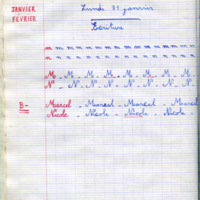 JANVIER
FÉVRIER
Lundi 31 janvier
Écriture
m m m m m m m m m m m m m
n n n n n n n n n n n n n
M _ M _ M _ M _ M _ M _ M
N _ N _ N _ N _ N _ N _ N
B - Marcel _ Marcel _ Marcel _ Marcel
Nicole _ Nicole _ Nicole _ Nicole _